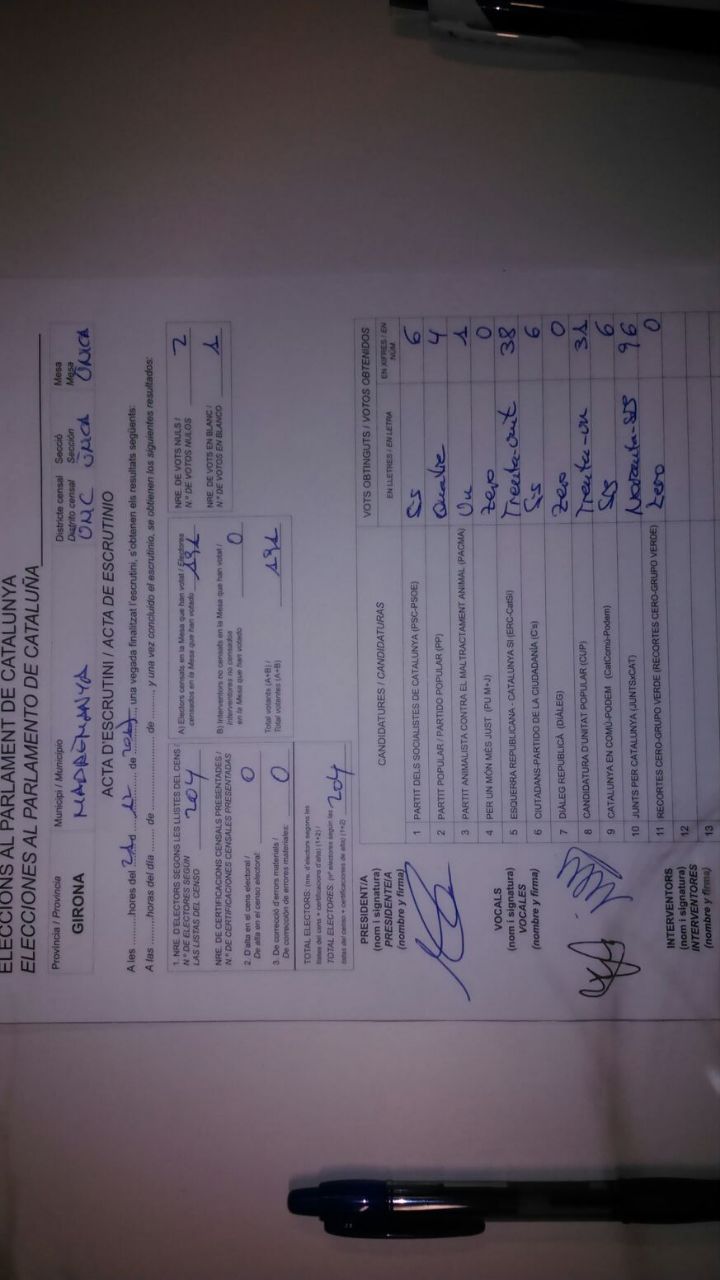 ELECCIONS AL PARLAMENT DE CATALUNYA
ELECCIONES AL PARLAMENTO DE CATALUÑA
Província / Provincia Municipi / Municipio Districte censal Secció Mesa
Distrito censal Sección Mesa
GIRONA MADREMANYA ÚNIC ÚNICA ÚNICA
ACTA D'ESCRUTINI / ACTA DE ESCRUTINIO
A les ..........hores del 21 de ........ de 2017, una vegada finalitzat l'escrutini, s'obtenen els resultats següents:
A las ..........horas del día ........ de ........................ de ........, y una vez concluido el escrutinio, se obtienen los siguientes resultados:
1. NRE. D'ELECTORS SEGONS LES LLISTES DEL CENS /
N.º DE ELECTORES SEGÚN
LAS LISTAS DEL CENSO 204
NRE. DE CERTIFICACIONS CENSALS PRESENTADES /
N.º DE CERTIFICACIONES CENSALES PRESENTADAS
2. D'alta en el cens electoral /
De alta en el censo electoral: 0
3. De correcció d'errors materials /
De corrección de errores materiales: 0
TOTAL ELECTORS: (nre. d'electors segons les
llistes del cens + certificacions d'alta) (1+2) /
TOTAL ELECTORES: (nº electores según las
listas del censo + certificaciones de alta) (1+2) 204
A) Electors censats en la Mesa que han votat / Electores
censados en la Mesa que han votado 191
B) Interventors no censats en la Mesa que han votat /
Interventores no censados
en la Mesa que han votado 0
Total votants (A+B) /
Total votantes (A+B) 191
NRE. DE VOTS NULS /
N.º DE VOTOS NULOS 2
NRE. DE VOTS EN BLANC /
N.º DE VOTOS EN BLANCO 1
CANDIDATURES / CANDIDATURAS VOTS OBTINGUTS / VOTOS OBTENIDOS
EN LLETRES / EN LETRA EN XIFRES / EN NÚM.
1 PARTIT DELS SOCIALISTES DE CATALUNYA (PSC-PSOE) Sis 6
2 PARTIT POPULAR / PARTIDO POPULAR (PP) Quatre 4
3 PARTIT ANIMALISTA CONTRA EL MALTRACTAMENT ANIMAL (PACMA) Un 1
4 PER UN MÓN MÉS JUST (PU M+J) Zero 0
5 ESQUERRA REPUBLICANA - CATALUNYA SÍ (ERC-CatSí) Trenta-vuit 38
6 CIUTADANS-PARTIDO DE LA CIUDADANÍA (C's) Sis 6
7 DIÀLEG REPUBLICÀ (DIÀLEG) Zero 0
8 CANDIDATURA D'UNITAT POPULAR (CUP) Trenta-un 31
9 CATALUNYA EN COMÚ-PODEM (CatComú-Podem) Sis 6
10 JUNTS PER CATALUNYA (JUNTSxCAT) Noranta-sis 96
11 RECORTES CERO-GRUPO VERDE (RECORTES CERO-GRUPO VERDE) Zero 0
12
13
PRESIDENT/A
(nom i signatura)
PRESIDENTE/A
(nombre y firma)
VOCALS
(nom i signatura)
VOCALES
(nombre y firma)
INTERVENTORS
(nom i signatura)
INTERVENTORES
(nombre y firma)